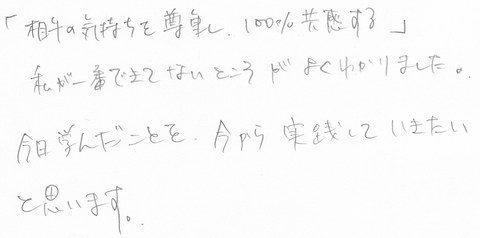 「相手の気持ちを尊重し、100%共感する」
私が一番できてないところがよくわかりました。
今日学んだことを、今から実践していきたい
と思います。